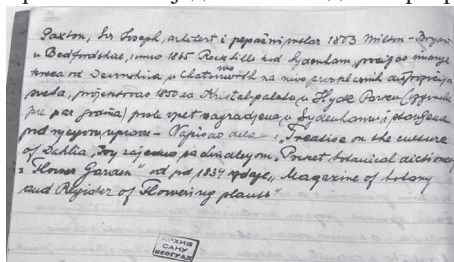 Paxton, Sir Joseph, arhitekt i pejsažni vrtlar 1803 Milton-Bryant
u Bedfordshire, umro 1865 Rockhills kod Sydenham, podigao imanje
kneza od Devonshira, u Chatsworth na nivo prvoklasnih
sveta, projektovao 1850-ta Kristal-palatu u Hyde Parku
pre par godina) posle opet sagradjena u Sydenhamu i
pod njegovom upravom - Napisao dela: "Treatise on the culture
of Dahlia", Tog zajedno sa Lindleyom, "Pocket botanical dictionary
i Flower Garden" od god 1834 izdaje "Magazine of botany
and Register of Flowering plants"
АРХИВ
САНУ
БЕОГРАД